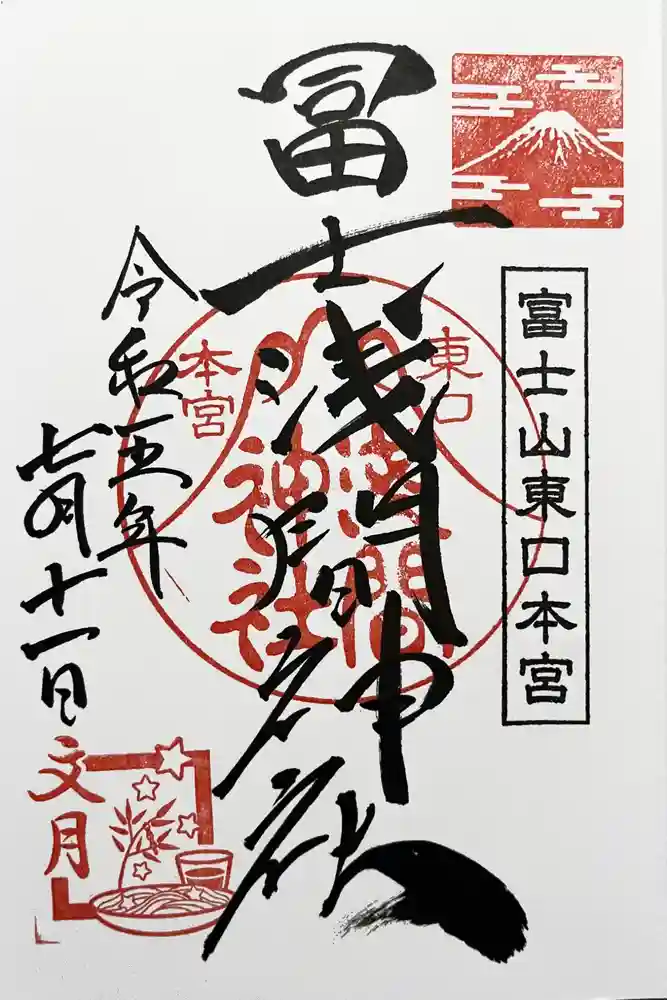 富士山東口本宮
冨士浅間神社
東口
本宮
浅間
神社
令和五年
七月十一日
文月